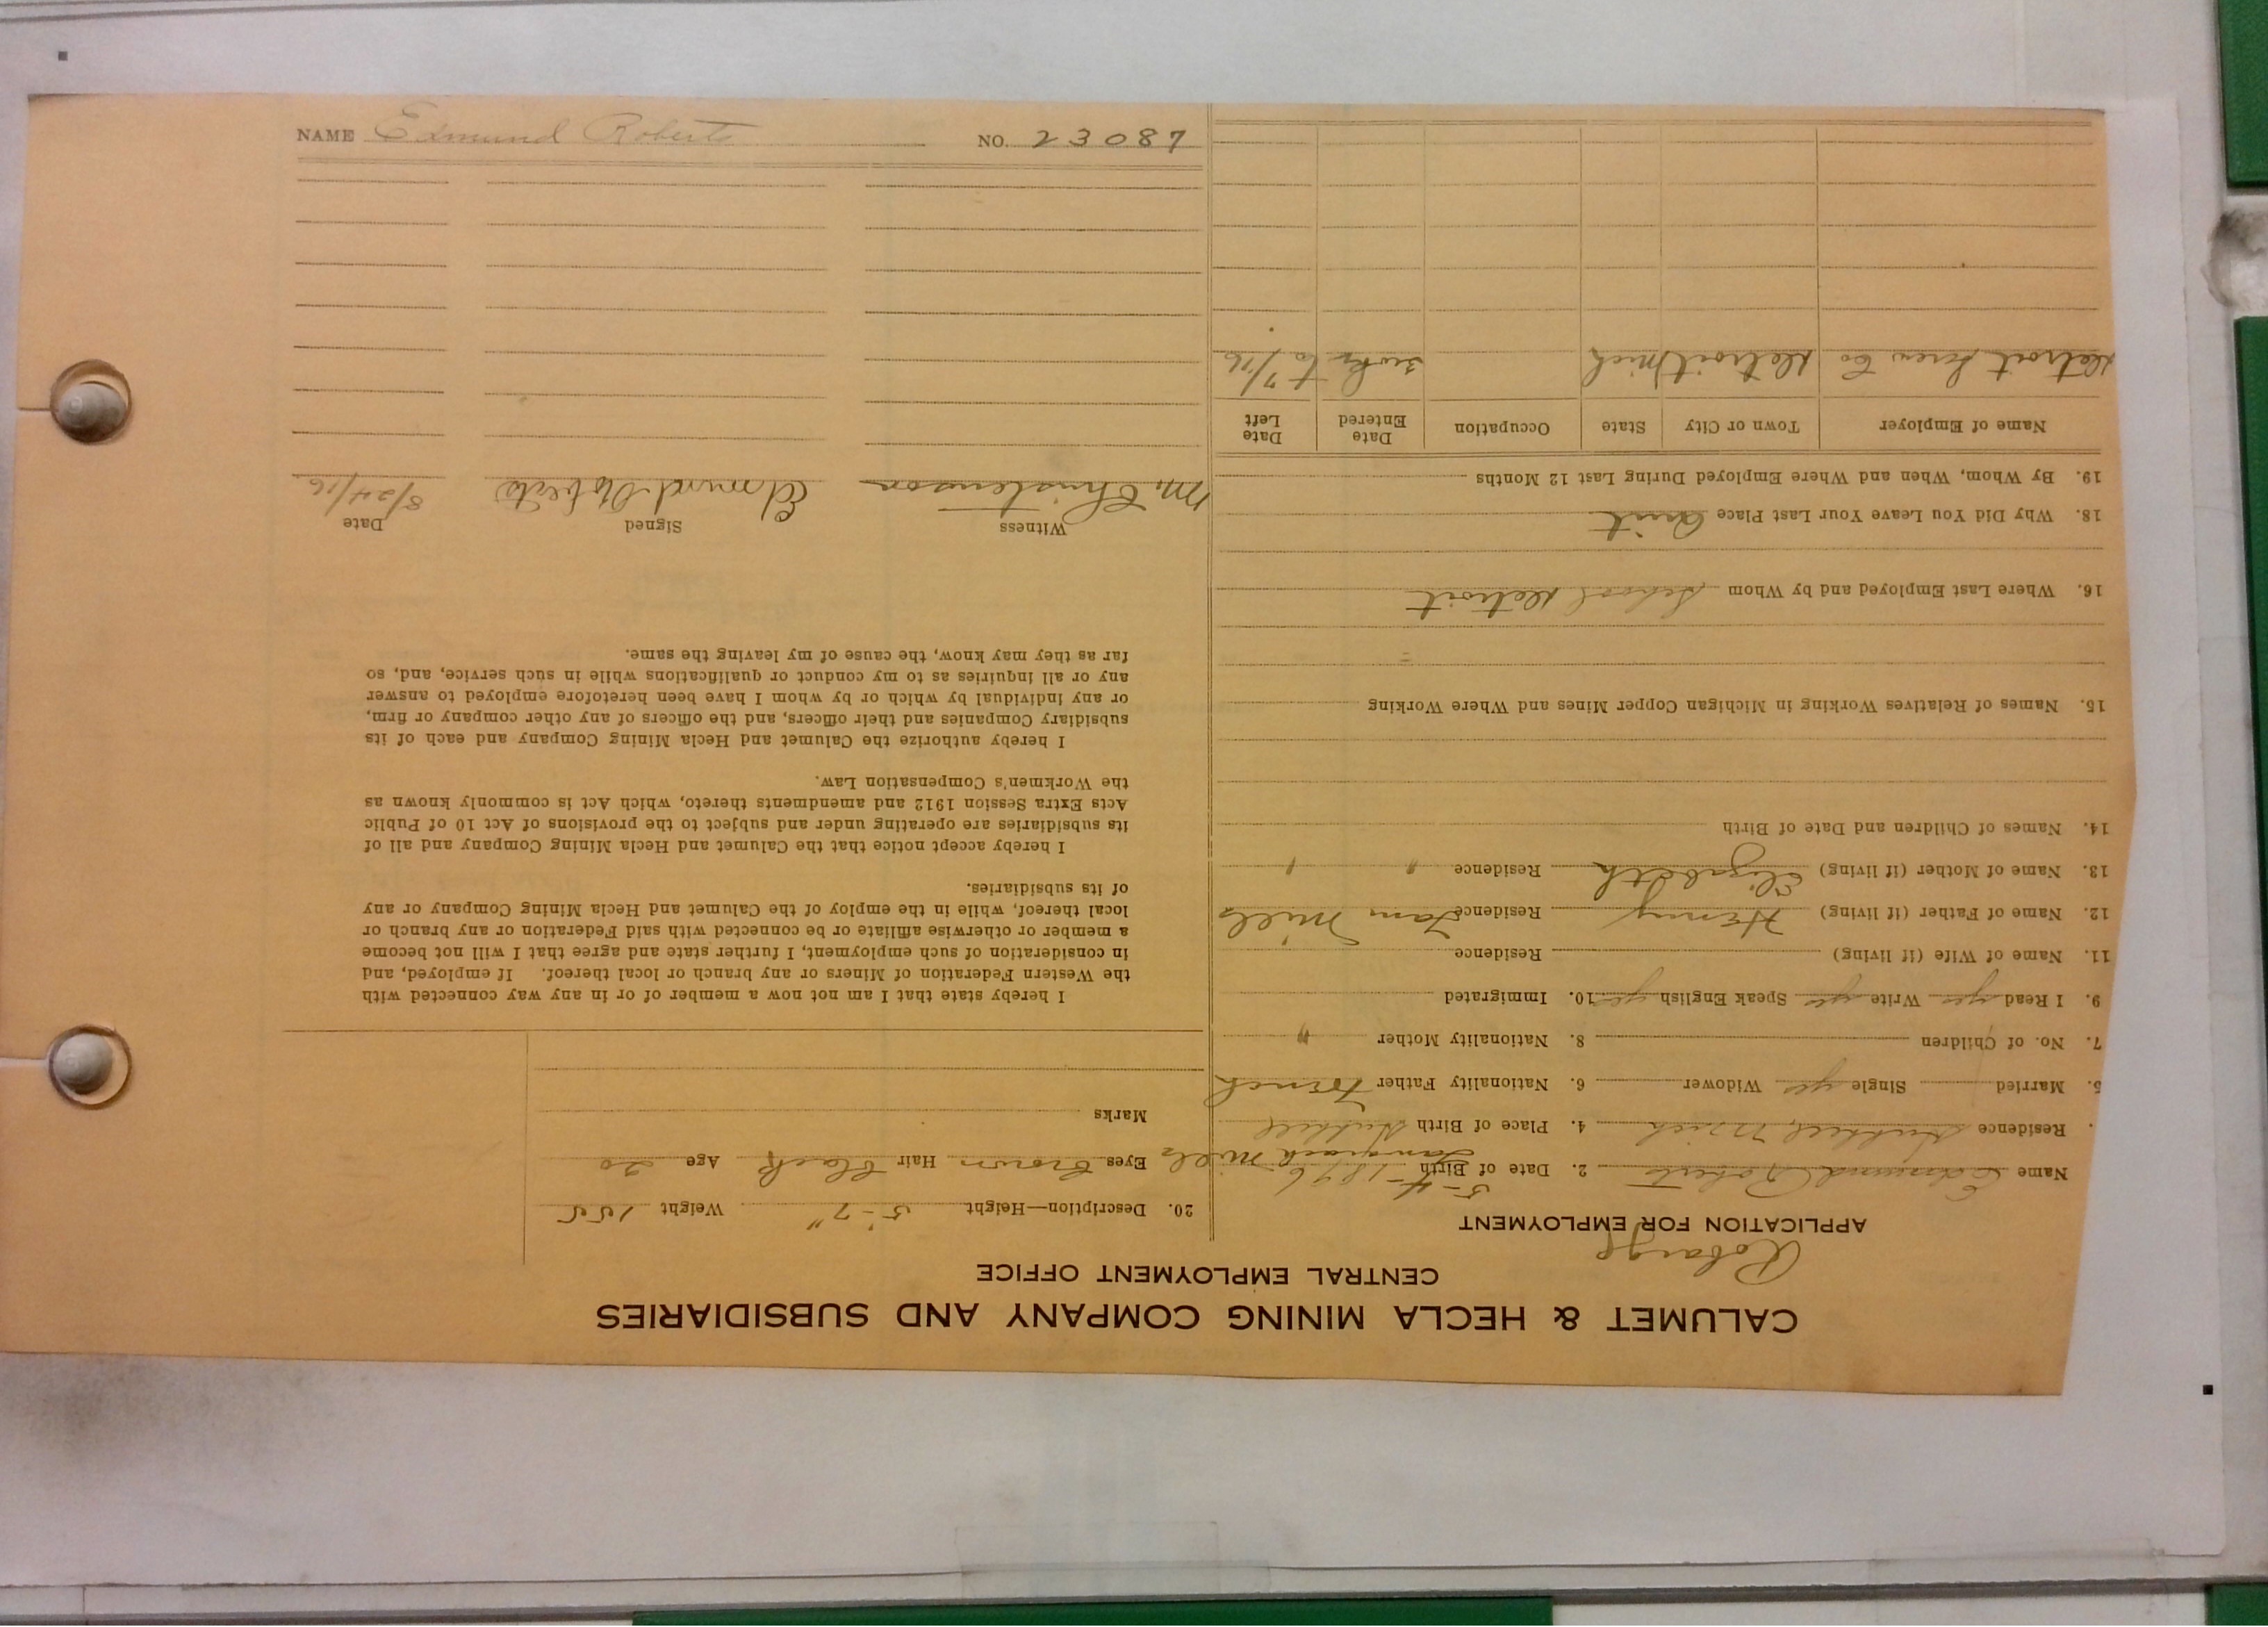 CALUMET & HECLA MINING COMPANY AND SUBSIDIARIES
CENTRAL EMPLOYMENT OFFICE
APPLICATION FOR EMPLOYMENT
Name Edmund Roberts 2. Date of Birth 5-4-1896
Residence Hubbell, Mich 4. Place of Birth Hubbell Tamarack Mills
5. Married Single yes Widower 6. Nationality Father French
7. No. of Children 8. Nationality Mother "
9. I Read yes Write yes Speak English yes 10. Immigrated
11. Name of Wife (if living) Residence
12. Name of Father (if living) Henry Residence Tam Mills
13. Name of Mother (if living) Elizabeth Residence " "
14. Names of Children and Date of Birth
15. Names of Relatives Working in Michigan Copper Mines and Where Working
16. Where Last Employed and by Whom School Detroit
18. Why Did You Leave Your Last Place Quit
19. By Whom, When and Where Employed During Last 12 Months
Name of Employer Town or City State Occupation Date Entered Date Left
Detroit Screw Co Detroit Mich 3 wks to 7/16
20. Description—Height 5'-7" Weight 155
Eyes Brown Hair Black Age 20
Marks
I hereby state that I am not now a member of or in any way connected with
the Western Federation of Miners or any branch or local thereof. If employed, and
in consideration of such employment, I further state and agree that I will not become
a member or otherwise affiliate or be connected with said Federation or any branch or
local thereof, while in the employ of the Calumet and Hecla Mining Company or any
of its subsidiaries.
I hereby accept notice that the Calumet and Hecla Mining Company and all of
its subsidiaries are operating under and subject to the provisions of Act 10 of Public
Acts Extra Session 1912 and amendments thereto, which Act is commonly known as
the Workmen's Compensation Law.
I hereby authorize the Calumet and Hecla Mining Company and each of its
subsidiary Companies and their officers, and the officers of any other company or firm,
or any individual by which or by whom I have been heretofore employed to answer
any or all inquiries as to my conduct or qualifications while in such service, and, so
far as they may know, the cause of my leaving the same.
Witness Signed Date
M. Christenson Edmund Roberts 8/24/16
NAME Edmund Roberts NO. 23087